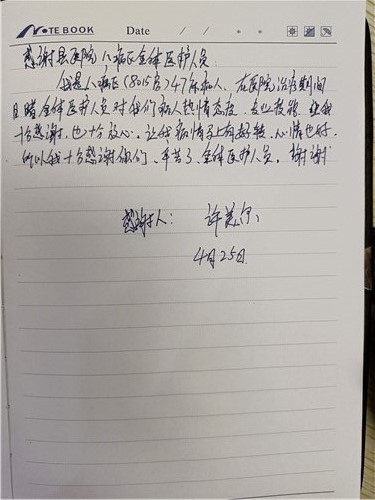 NOTE BOOK Date / /
感谢县医院八病区全体医护人员:
我是八病区(8015房)47床病人、在医院治疗期间
目睹全体医护人员对我们病人热情态度、专业技能、让我
十分感谢、也十分放心。让我病情有好转、心情也好、
所以我十分感谢你们、辛苦了、全体医护人员。谢谢
感谢人: 许
4月25日